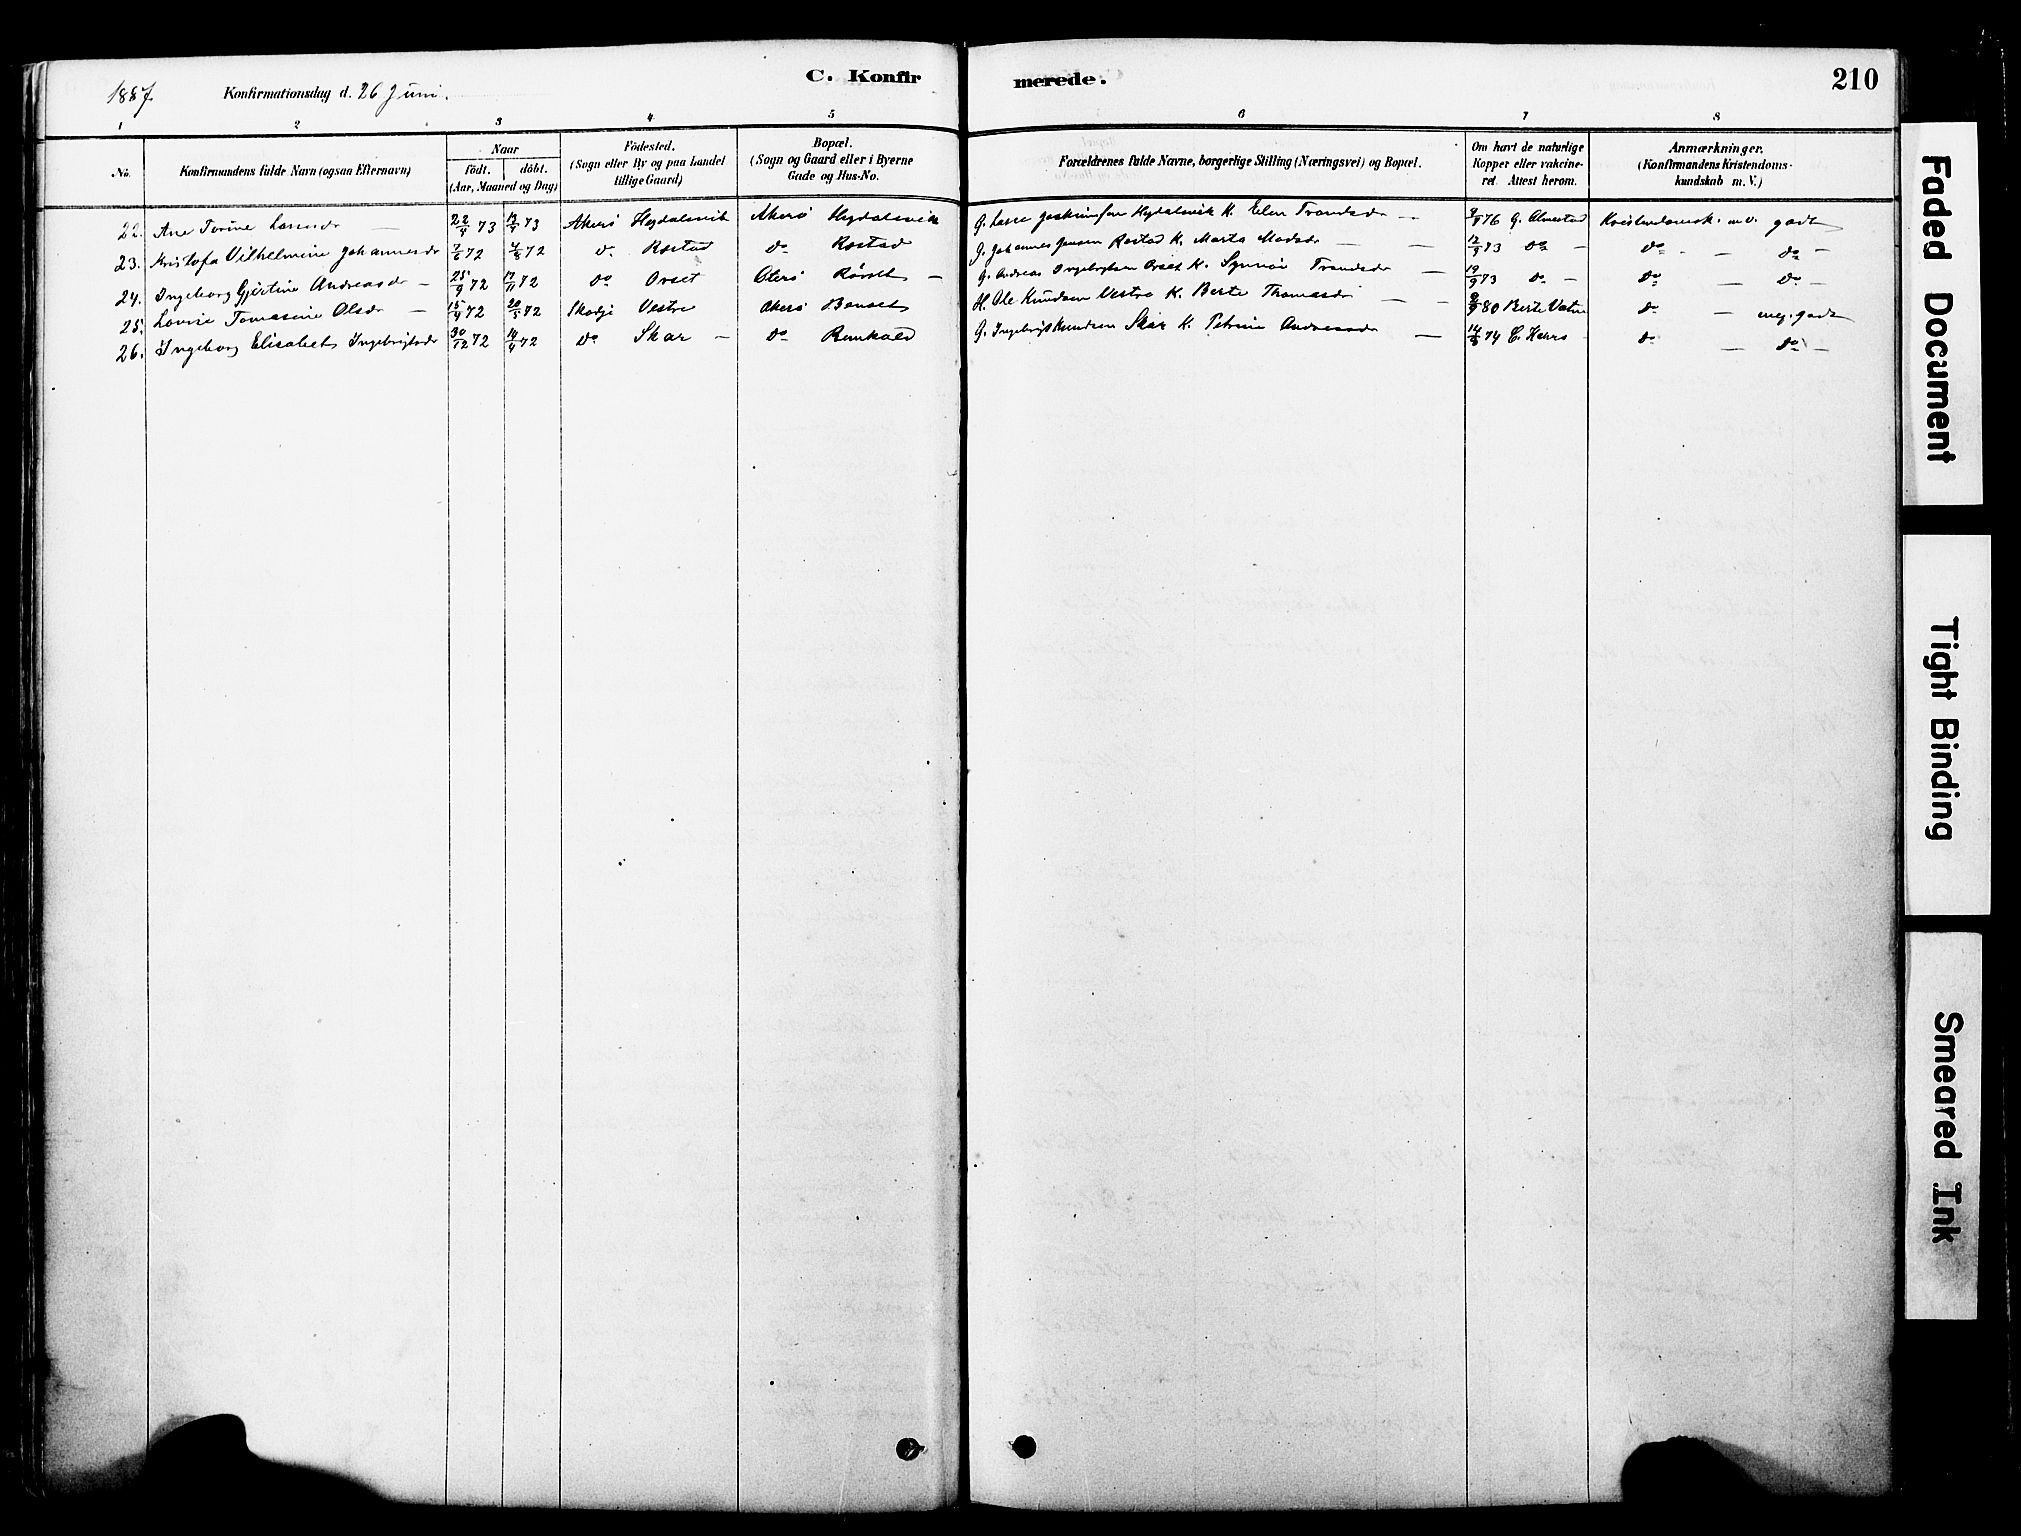 1887
Konfirmationsdag d. 26 Juni.
C. Konfirmerede.
210
1 2 3 4 5 6 7 8
No.
Konfirmandens fulde Navn (ogsaa Efternavn)
Naar
födt. döbt.
(Aar, Maaned og Dag)
Födested.
(Sogn eller By og paa Landet
tillige Gaard)
Bopæl.
(Sogn og Gaard eller i Byerne
Gade og Hus-No.
Forældrenes fulde Navne, borgerlige Stilling (Næringsvei) og Bopæl.
Om havt de naturlige
Kopper eller vakcine-
ret. Attest herom.
Anmærkninger.
(Konfirmandens Kristendoms-
kundskab m. V.)
22. Ane 73 73 Akerø Akerø G. Lasse K. Elen Trondsdr 76 G. Kristendomsk. m.v. godt
23. Kristofa Vilhelmine Johannesdr 72 72 do Rostad do Rostad G. Johannes Jensen Rostad K. Marta Madsdr 73 do do do
24. Ingeborg Gjertine Andreasdr 25/9 72 17/11 72 do Orset G. Andreas Orset K. Synnøv Trondsdr 73 do do do
25. Lovise Tomasine Olsdr 15/4 72 20/5 72 Skodje Vestre Akerø H. Ole Knudsen Vestre K. Berte Thomasdr 80 Berte Vatne do meg. godt
26. Ingeborg Elisabet Ingebrigtsdr 30/12 72 72 do Skar do G. Ingebrigt Knudsen Skar K. Petrine Andreasdr 74 do do
Faded Document
Tight Binding
Smeared Ink